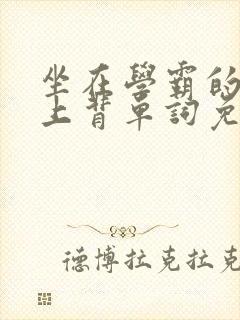 坐在學霸的
上背單詞免
德博拉克拉克